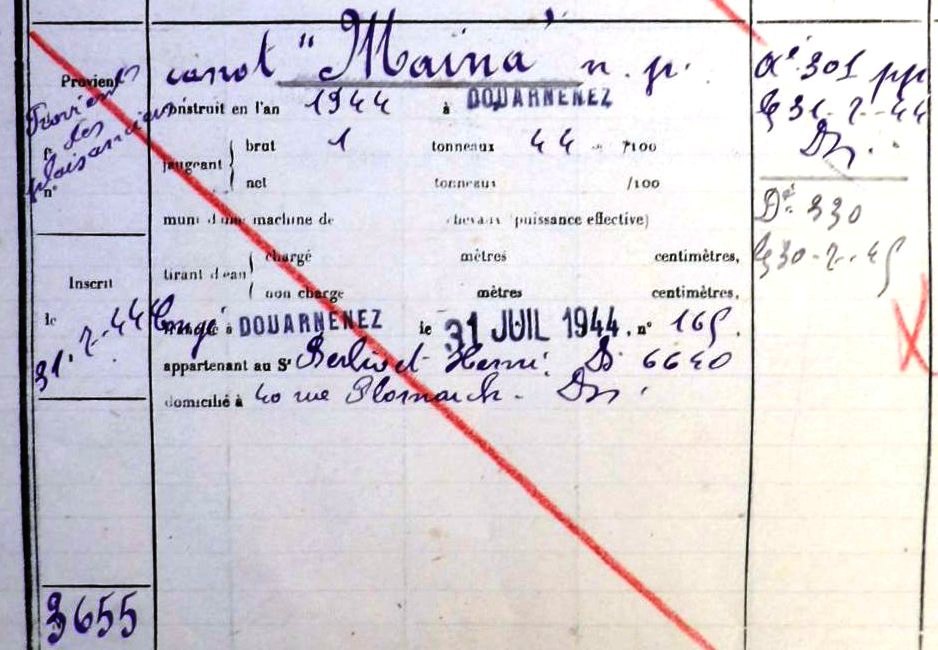 Provient
Provient
des
plaisanciers
n°
Inscrit
le
31 7-44
3655
canot "Maïna" n. p.
construit en l'an 1944 à DOUARNENEZ
jaugeant { brut 1 tonneaux 44 /100
net tonneaux /100
muni d'une machine de chevaux (puissance effective)
tirant d'eau { chargé mètres centimètres,
non chargé mètres centimètres,
Congé à DOUARNENEZ le 31 JUIL 1944. n° 165.
appartenant au Sr Henri. D 6640
domicilié à 40 rue Plomarch. Dz.
At 301 pp
le 31-7-44
Dz.
Dt. 330
le 30-7-45